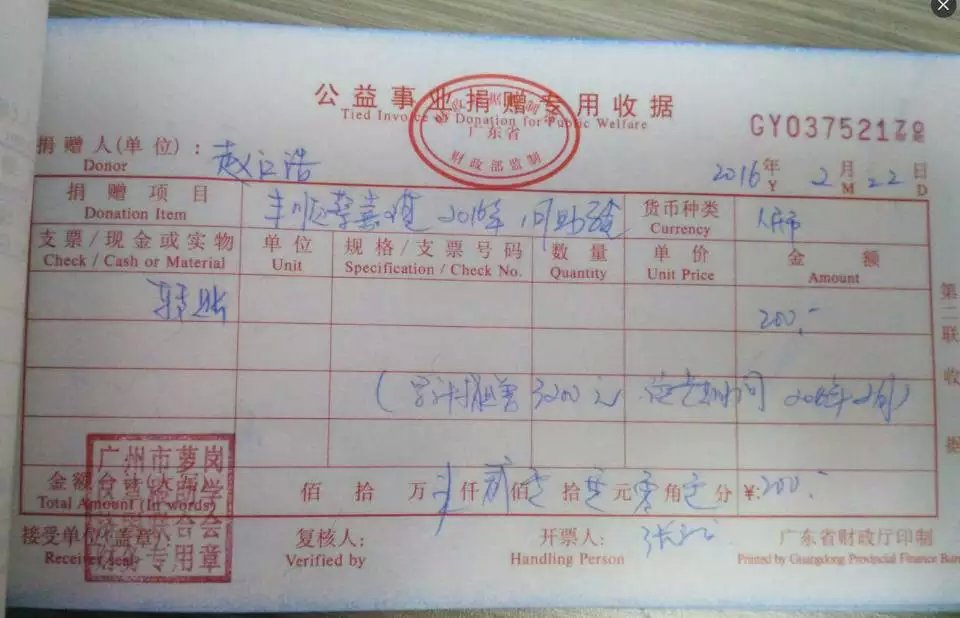 公益事业捐赠专用收据
Tied Invoice of Donation for Public Welfare
广东省
财政部监制
GY03752170
捐赠人(单位):
Donor
赵江浩
2016年 2月 22日
Y M D
捐赠项目
Donation Item
2016年
货币种类
Currency
人民币
支票/现金或实物
Check / Cash or Material
单位
Unit
规格/支票号码
Specification / Check No.
数量
Quantity
单价
Unit Price
金额
Amount
转账
200.-
(累计捐赠3200元
第二联 收据
金额合计(大写)
Total Amount (In words)
佰 拾 万 仟 贰佰 拾 元 零角 分 ¥:200.-
广州市萝岗
助学
专用章
接受单位(盖章)
Receiver seal
复核人:
Verified by
开票人:
Handling Person
张
广东省财政厅印制
Printed by Guangdong Provincial Finance